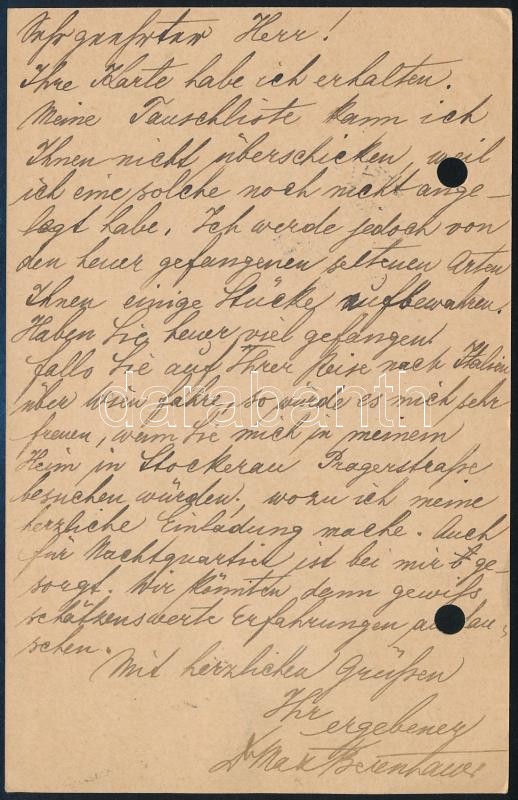 Sehr geehrter Herr!
Ihre Karte habe ich erhalten.
Meine Tauschliste kann ich
Ihnen nicht überschicken, weil
ich eine solche noch nicht ange-
legt habe. Ich werde jedoch von
den heuer gefangenen seltenen Arten
Ihnen einige Stücke aufbewahren.
Haben Sie heuer viel gefangen?
Falls Sie auf Ihrer Reise nach Italien
über Wien fahre, so würde es mich sehr
freuen, wenn Sie mich in meinem
Heim in Stockerau Pragerstraße
besuchen würden, wozu ich meine
herzliche Einladung mache. Auch
für Nachtquartier ist bei mir ge-
sorgt. Wir könnten dann gewiß
schätzenswerte Erfahrungen austau-
schen.
Mit herzlichen Grüßen
Ihr
ergebener
Dr Max
darabanth